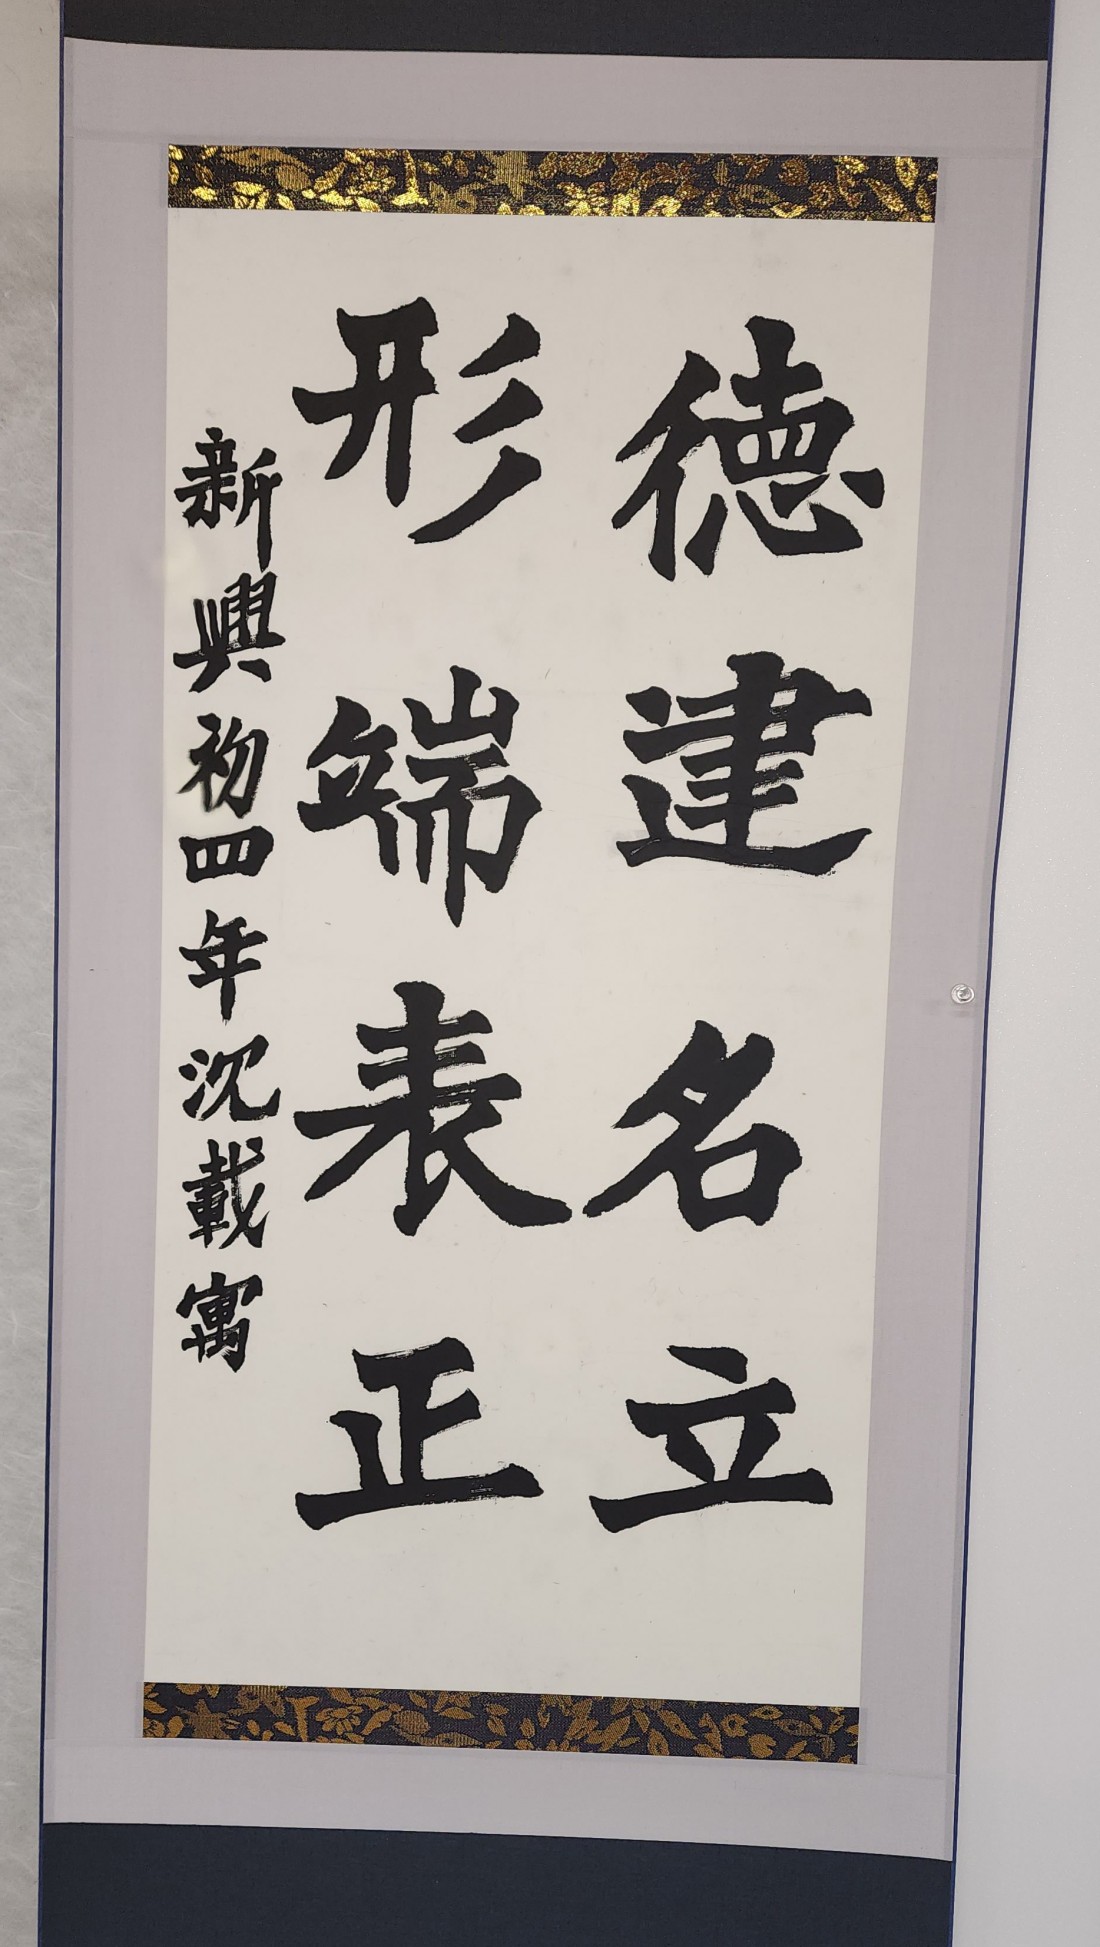 徳建名立
形端表正
新興初四年沈載寓